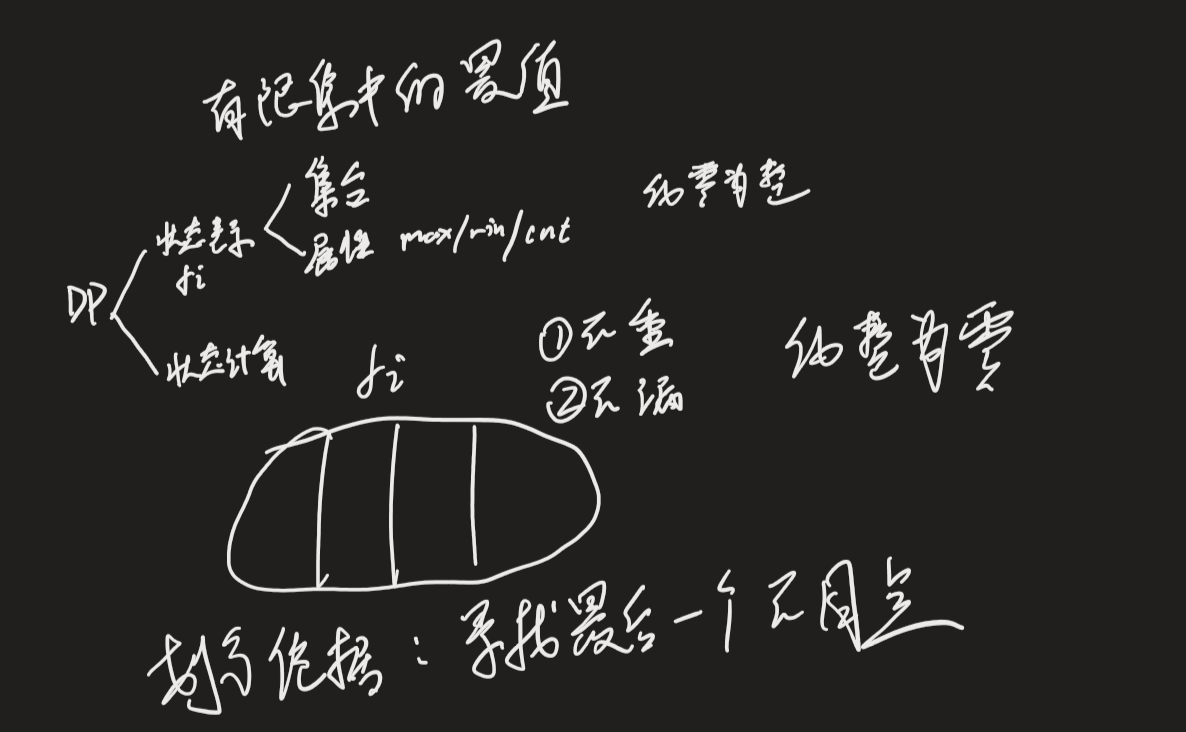 有限集中的最值
集合
化零为整
状态表示
属性 max/min/cnt
fi
DP
①不重
化整为零
状态计算
fi
②不漏
划分依据：寻找最后一个不同点